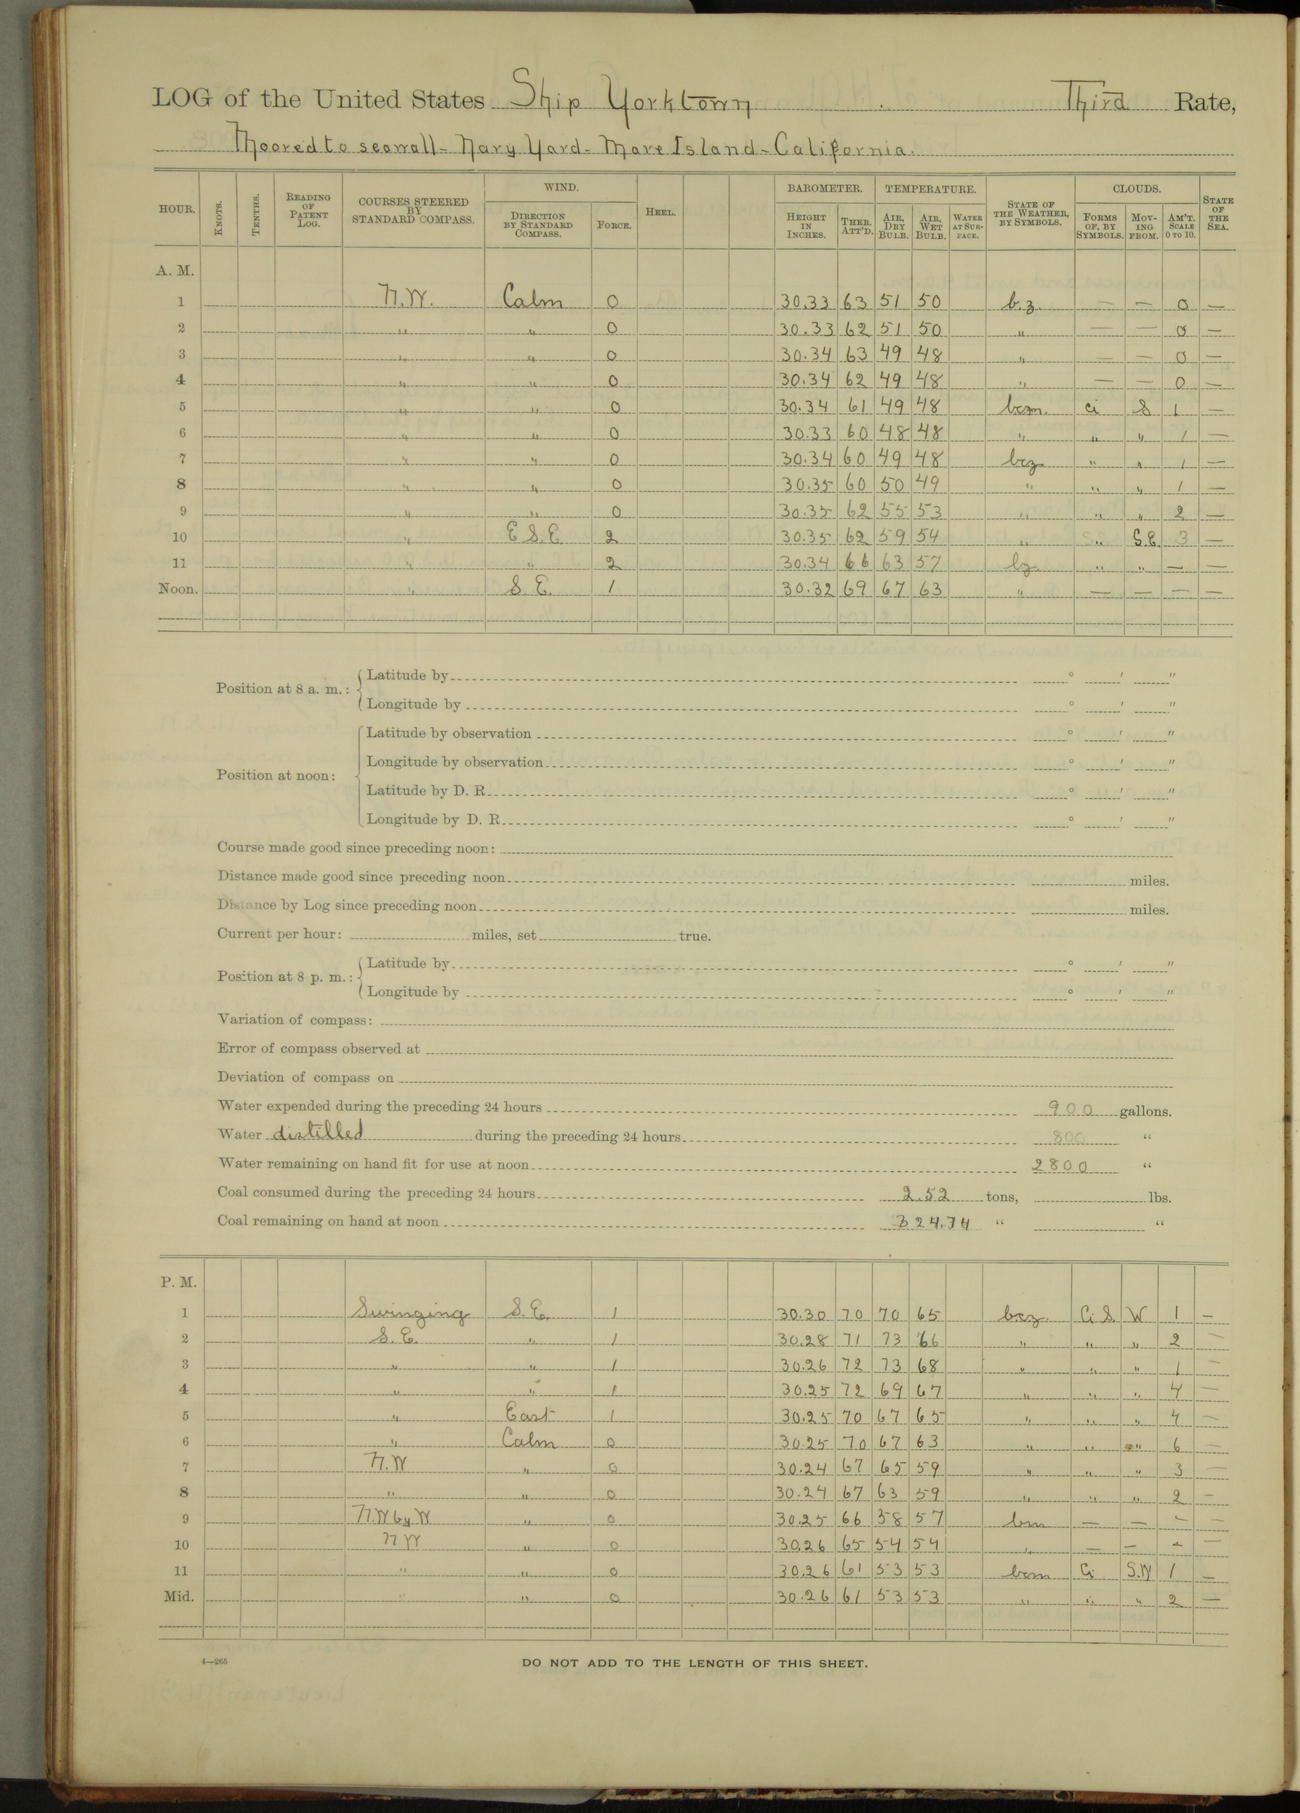 LOG of the United States Ship Yorktown Third Rate,
Moored to seawall - Navy Yard - Mare Island - California.
HOUR. KNOTS. TENTHS. READING OF PATENT LOG. COURSES STEERED BY STANDARD COMPASS. WIND. DIRECTION BY STANDARD COMPASS. FORCE. HEEL. BAROMETER. HEIGHT IN INCHES. THER. ATT'D. TEMPERATURE. AIR, DRY BULB. AIR, WET BULB. WATER AT SURFACE. STATE OF THE WEATHER, BY SYMBOLS. CLOUDS. FORMS OF, BY SYMBOLS. MOVING FROM. AM'T. SCALE 0 TO 10. STATE OF THE SEA.
A. M.
1 N.W. Calm 0 30.33 63 51 50 b.z. — — 0 —
2 " " 0 30.33 62 51 50 " — — 0 —
3 " " 0 30.34 63 49 48 " — — 0 —
4 " " 0 30.34 62 49 48 " — — 0 —
5 " " 0 30.34 61 49 48 bcm. Ci S 1 —
6 " " 0 30.33 60 48 48 " " " 1 —
7 " " 0 30.34 60 49 48 bcz " " 1 —
8 " " 0 30.35 60 50 49 " " " 1 —
9 " " 0 30.35 62 55 53 " " " 2 —
10 " E S.E. 2 30.35 62 59 54 " " S.E. 3 —
11 " " 2 30.34 66 63 57 bz. " " — —
Noon. " S.E. 1 30.32 69 67 63 " — — — —
Position at 8 a. m.: Latitude by ° ' "
Longitude by ° ' "
Position at noon: Latitude by observation ° ' "
Longitude by observation ° ' "
Latitude by D. R. ° ' "
Longitude by D. R. ° ' "
Course made good since preceding noon:
Distance made good since preceding noon miles.
Distance by Log since preceding noon miles.
Current per hour: miles, set true.
Position at 8 p. m.: Latitude by ° ' "
Longitude by ° ' "
Variation of compass:
Error of compass observed at
Deviation of compass on
Water expended during the preceding 24 hours 900 gallons.
Water distilled during the preceding 24 hours 800 "
Water remaining on hand fit for use at noon 2800 "
Coal consumed during the preceding 24 hours 2.52 tons, lbs.
Coal remaining on hand at noon 324.74 " "
P. M.
1 Swinging S.E. 1 30.30 70 70 65 bcz. Ci S. W 1 —
2 S.E. " 1 30.28 71 73 66 " " " 2 —
3 " " 1 30.26 72 73 68 " " " 1 —
4 " " 1 30.25 72 69 67 " " " 4 —
5 " East 1 30.25 70 67 65 " " " 4 —
6 " Calm 0 30.25 70 67 63 " " " 6 —
7 N.W " 0 30.24 67 65 59 " " " 3 —
8 " " 0 30.24 67 63 59 " " " 2 —
9 N.W by W " 0 30.25 66 58 57 bm — — — —
10 N W " 0 30.26 65 54 54 " — — — —
11 " " 0 30.26 61 53 53 bcm Ci S.W 1 —
Mid. " " 0 30.26 61 53 53 " " " 2 —
4—265
DO NOT ADD TO THE LENGTH OF THIS SHEET.